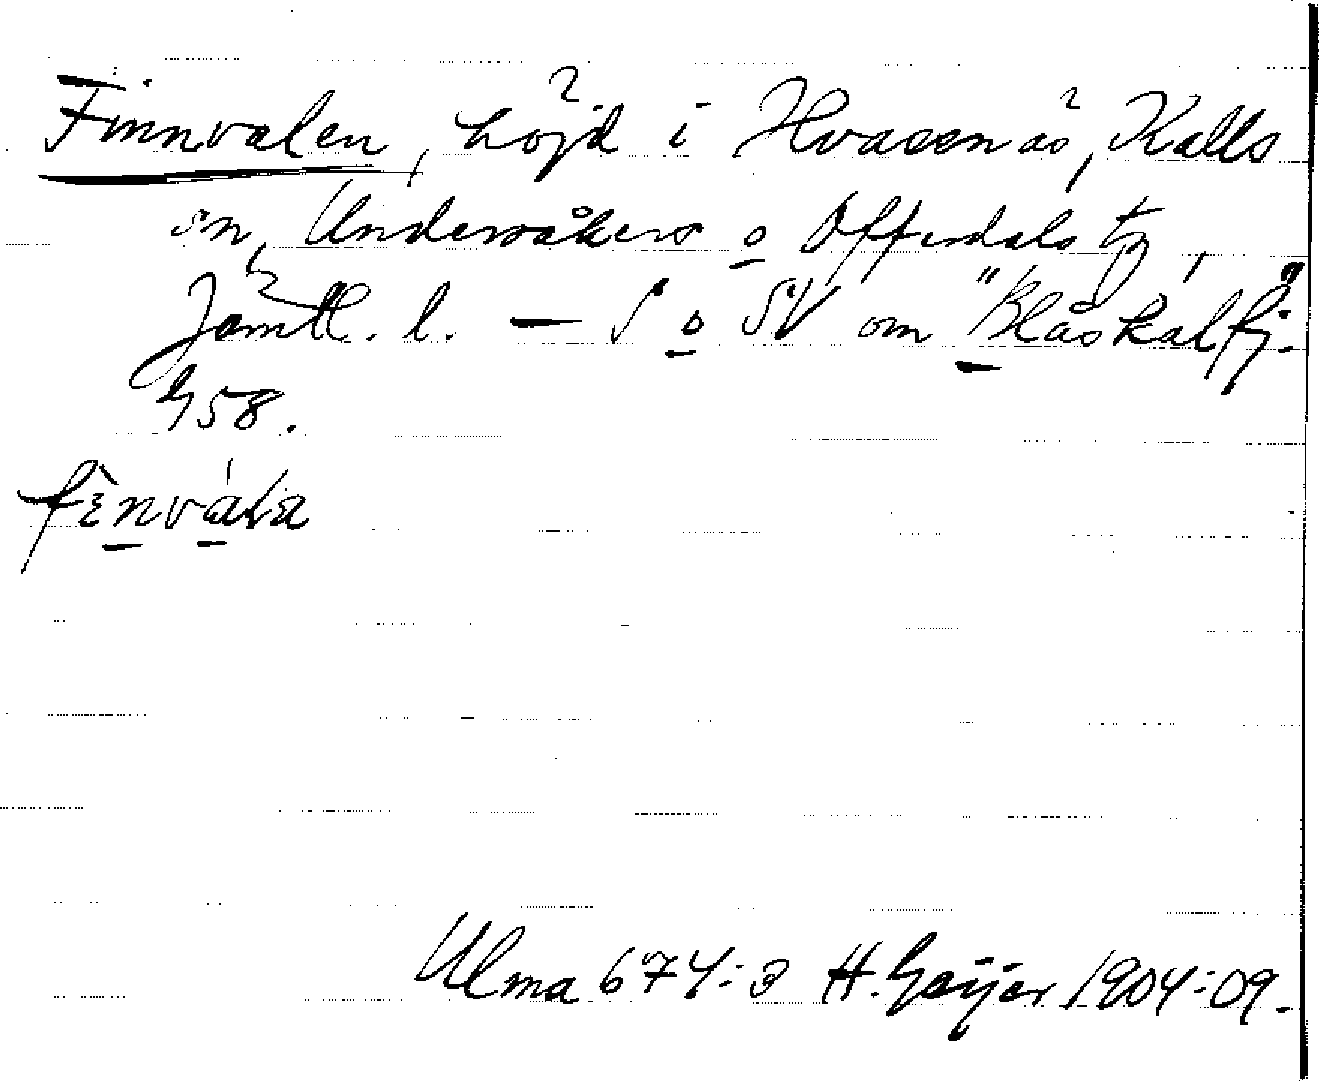 Finnvalen, höjd i Kvarnnäs, Kalls
sn, Undersåkers o Offerdals tg,
Jämtl. l. — S o SV om "Blåskalfj."
458.
Ulma 674:3 H. Geijer 1904-09.